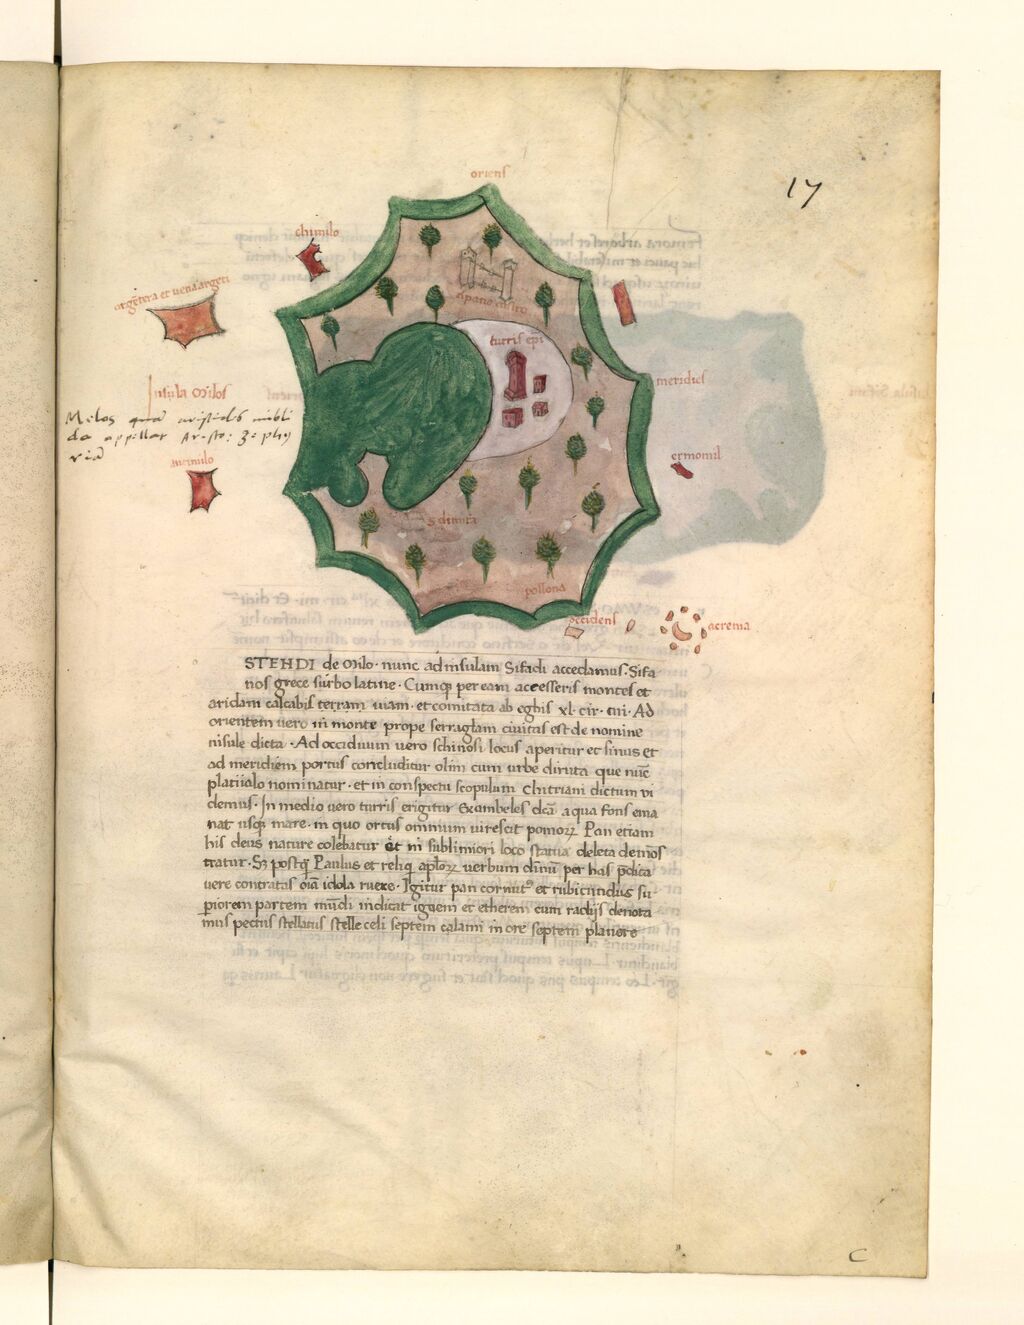 17
oriens
chimilo
argẽtera et vena argẽti
cipano castro
turris epi
meridies
Insula Milos
Melos
ermomil
animilo
pollona
occidens
acrema
STEHDI de Milo · nunc ad insulam Sifadi accedamus · Sifa
nos grece surbo latine · Cumqꝫ per eam accesseris montes et
aridam calcabis terram uiam · et comitata ab eghis xl · cir · cui · Ad
orientem uero in monte prope serraglam ciuitas est de nomine
nisule dicta · Ad occiduum uero schinosi locus aperitur et sinus et
ad meridiem portus concluditur olim cum urbe diruta que nũc
platiialo nominatur · et in conspectu scopulum Chitriani dictum vi
demus · In medio uero turris erigitur Exambeles dcã aqua fons ema
nat usqꝫ mare · in quo ortus omnium uirescit pomoꝝ Pan etiam
his deus nature colebatur et in sublimiori loco statua deleta demõs
tratur · Sꝫ postqꝫ Paulus et reliqi apl'oꝝ uerbum diuinũ per has p̃dica
uere contratas oĩa idola ruere · Igitur pan cornutꝰ et rubicundus su
ꝑiorem partem mũdi indicat ignem et etherem cum radijs denota
mus pectus stellatus stelle celi septem calami in ore septem planete
C